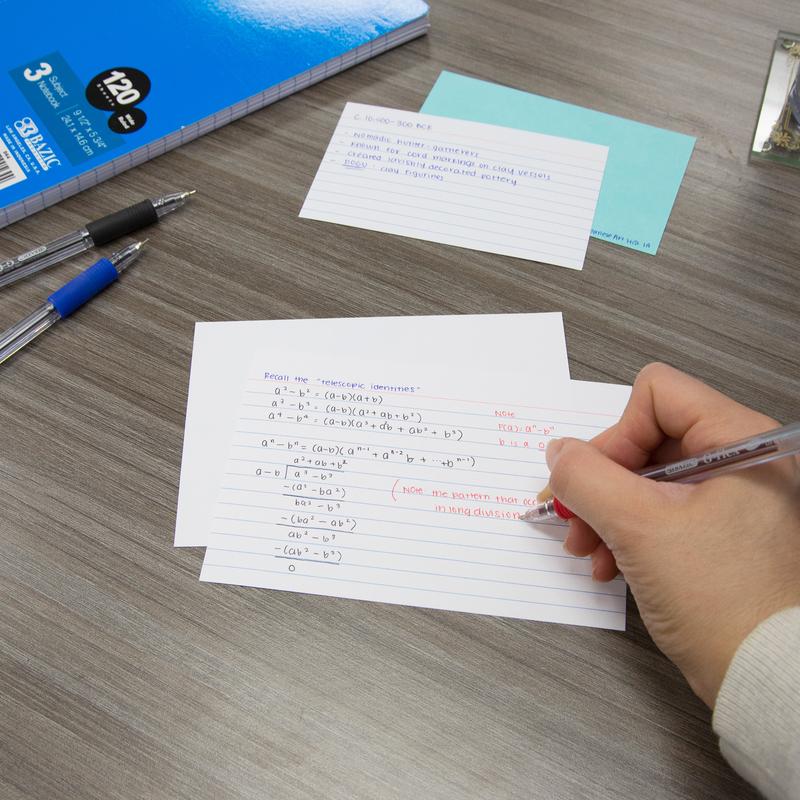 3
Subject
Notebook
120
9 1/2" x 5 3/4"
24.1 x 14.6 cm
BAZIC
LOS ANGELES, CA, U.S.A.
C. 10,500-300 BCE
- Nomadic hunter-gatherers
- Known for cord markings on clay vessels
- Created lavishly decorated pottery
- DOGU: clay figurines
Art Hist 1A
Recall the "telescopic identities"
a² - b² = (a-b)(a+b)
a³ - b³ = (a-b)(a²+ab+b²)
a⁴ - b⁴ = (a-b)(a³ + a²b + ab² + b³)
aⁿ - bⁿ = (a-b)(aⁿ⁻¹ + aⁿ⁻²b + ... + bⁿ⁻¹)
a² + ab + b²
a - b a³ - b³
-(a³ - ba²)
ba² - b³
-(ba² - ab²)
ab² - b³
-(ab² - b³)
0
Note
P(a) = aⁿ - bⁿ
b is a
(Note the pattern that
in long division
BAZIC